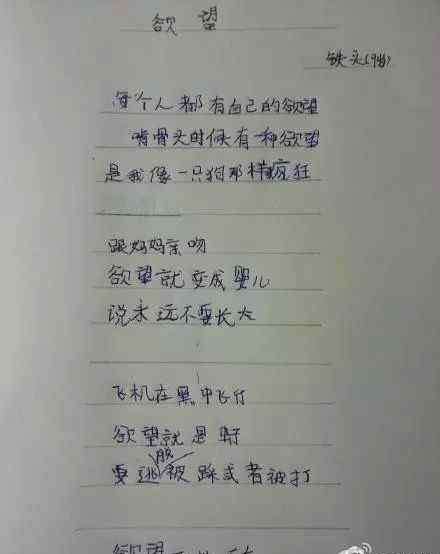 欲望
铁头(9岁)
每个人都有自己的欲望
啃骨头时候有一种欲望
是我像一只狗那样疯狂
跟妈妈亲吻
欲望就变成婴儿
说永远不要长大
飞机在黑中飞行
欲望就是
要逃脱被踩或者被打
欲望